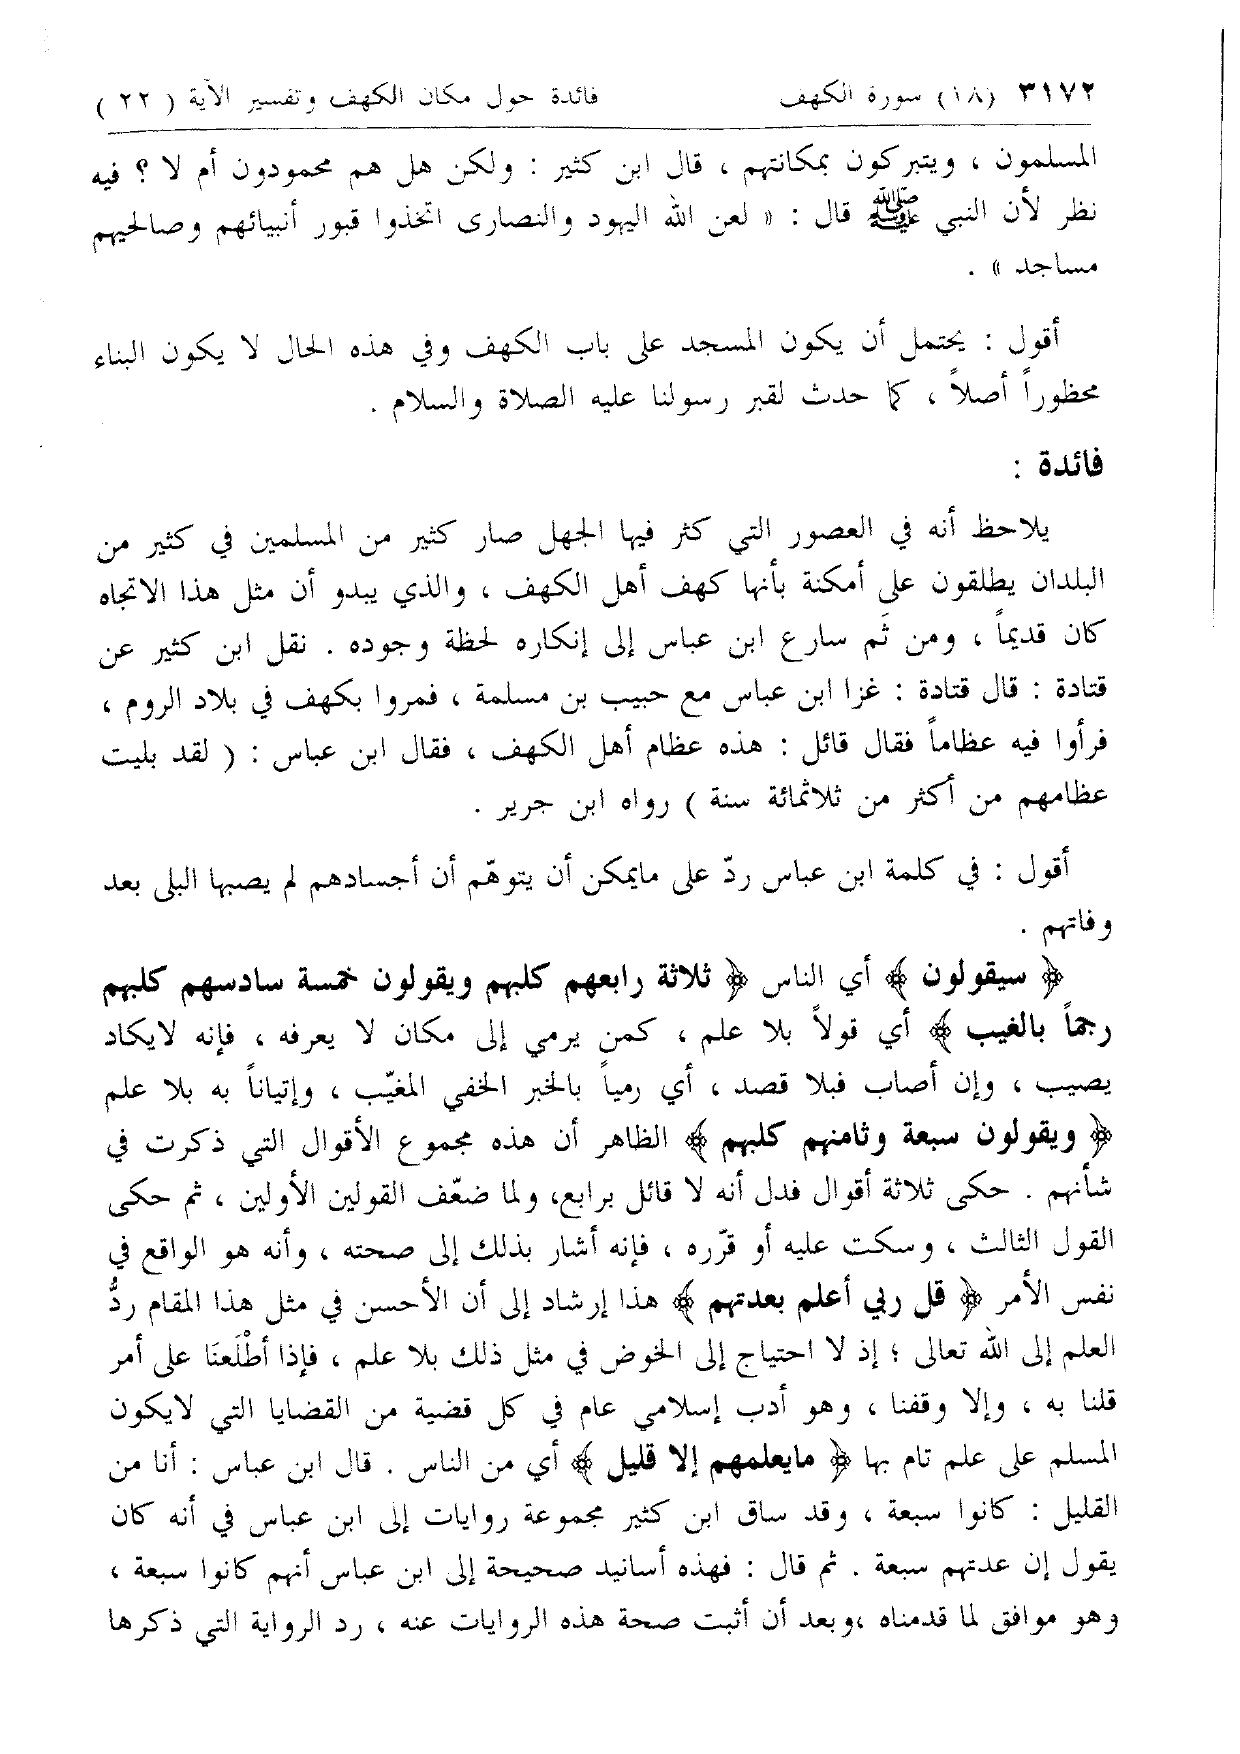 ٣١٧٢ (١٨) سورة الكهف فائدة حول مكان الكهف وتفسير الآية ( ٢٢ )
المسلمون ، ويتبركون بمكانتهم ، قال ابن كثير : ولكن هل هم محمودون أم لا ؟ فيه
نظر لأن النبي ﷺ قال : « لعن الله اليهود والنصارى اتخذوا قبور أنبيائهم وصالحيهم
مساجد » .
أقول : يحتمل أن يكون المسجد على باب الكهف وفي هذه الحال لا يكون البناء
محظوراً أصلاً ، كما حدث لقبر رسولنا عليه الصلاة والسلام .
فائدة :
يلاحظ أنه في العصور التي كثر فيها الجهل صار كثير من المسلمين في كثير من
البلدان يطلقون على أمكنة بأنها كهف أهل الكهف ، والذي يبدو أن مثل هذا الاتجاه
كان قديماً ، ومن ثَم سارع ابن عباس إلى إنكاره لحظة وجوده . نقل ابن كثير عن
قتادة : قال قتادة : غزا ابن عباس مع حبيب بن مسلمة ، فمروا بكهف في بلاد الروم ،
فرأوا فيه عظاماً فقال قائل : هذه عظام أهل الكهف ، فقال ابن عباس : ( لقد بليت
عظامهم من أكثر من ثلاثمائة سنة ) رواه ابن جرير .
أقول : في كلمة ابن عباس ردّ على مايمكن أن يتوهّم أن أجسادهم لم يصبها البلى بعد
وفاتهم .
﴿ سيقولون ﴾ أي الناس ﴿ ثلاثة رابعهم كلبهم ويقولون خمسة سادسهم كلبهم
رجماً بالغيب ﴾ أي قولاً بلا علم ، كمن يرمي إلى مكان لا يعرفه ، فإنه لايكاد
يصيب ، وإن أصاب فبلا قصد ، أي رمياً بالخبر الخفي المغيّب ، وإتياناً به بلا علم
﴿ ويقولون سبعة وثامنهم كلبهم ﴾ الظاهر أن هذه مجموع الأقوال التي ذكرت في
شأنهم . حكى ثلاثة أقوال فدل أنه لا قائل برابع، ولما ضعّف القولين الأولين ، ثم حكى
القول الثالث ، وسكت عليه أو قرّره ، فإنه أشار بذلك إلى صحته ، وأنه هو الواقع في
نفس الأمر ﴿ قل ربي أعلم بعدتهم ﴾ هذا إرشاد إلى أن الأحسن في مثل هذا المقام ردُّ
العلم إلى الله تعالى ؛ إذ لا احتياج إلى الخوض في مثل ذلك بلا علم ، فإذا أطْلَعنَا على أمر
قلنا به ، وإلا وقفنا ، وهو أدب إسلامي عام في كل قضية من القضايا التي لايكون
المسلم على علم تام بها ﴿ مايعلمهم إلا قليل ﴾ أي من الناس . قال ابن عباس : أنا من
القليل : كانوا سبعة ، وقد ساق ابن كثير مجموعة روايات إلى ابن عباس في أنه كان
يقول إن عدتهم سبعة . ثم قال : فهذه أسانيد صحيحة إلى ابن عباس أنهم كانوا سبعة ،
وهو موافق لما قدمناه ،وبعد أن أثبت صحة هذه الروايات عنه ، رد الرواية التي ذكرها